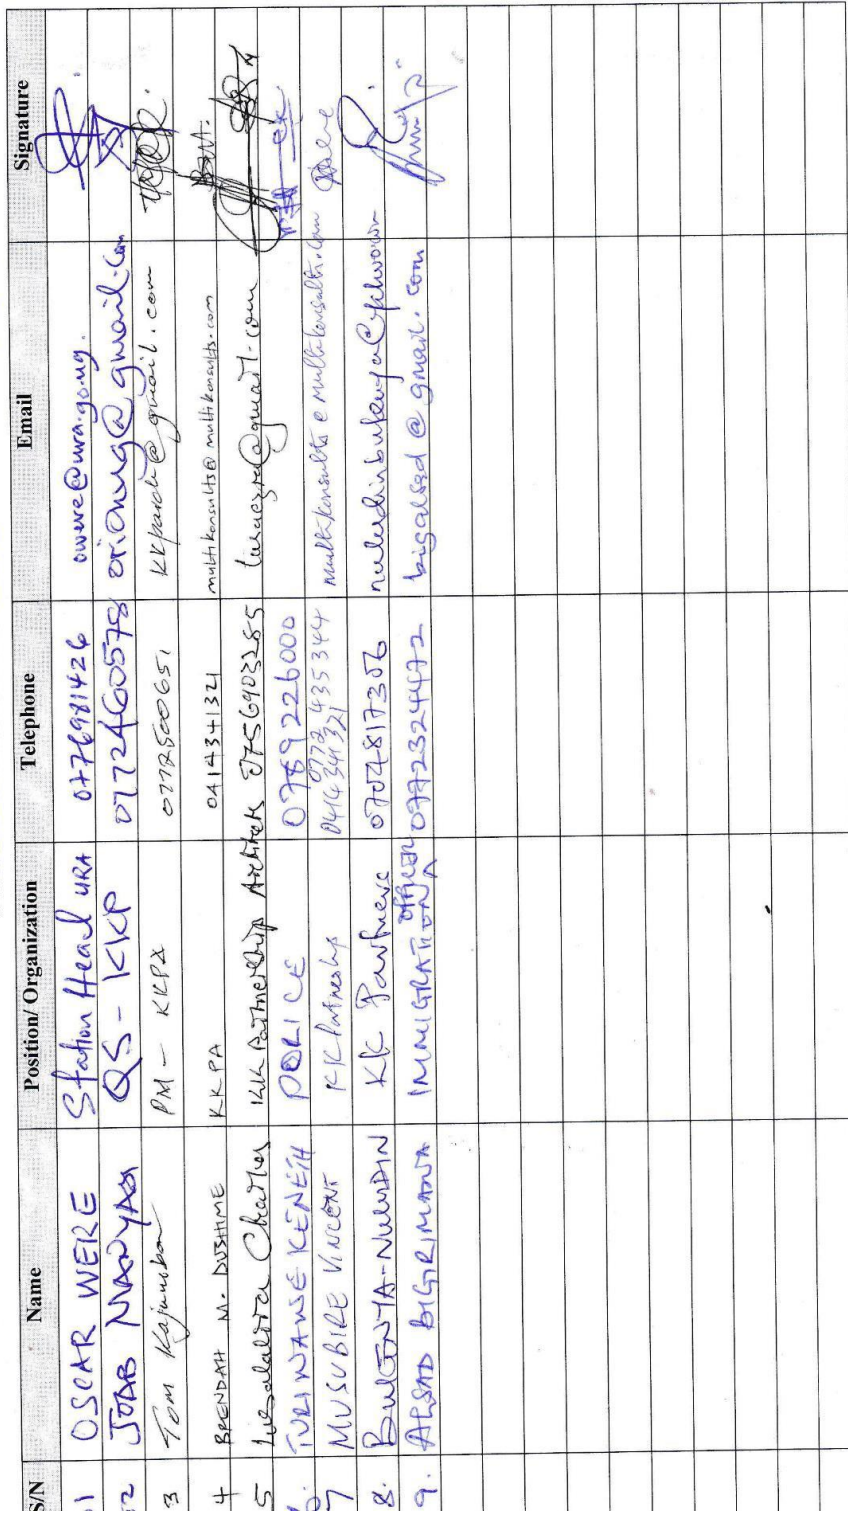 S/N Name Position/ Organization Telephone Email Signature
01 OSCAR WERE Station Head URA 0776981426 owere@ura.go.ug.
02 JOAB MANYASI QS - KKP 0772460578 orionug@gmail.com
3 Tom Kajumba PM - KKPA 0772500651 kkparch@gmail.com
4 BRENDAH M. DUSHIME KKPA 0414341321 multikonsults@multikonsults.com
5 Charles KK Partnership Architects 0756903285
6. TURINAWE KENETH POLICE 0789226000
7 MUSUBIRE VINCENT KK Partnership 0772 435344
0414341321 multikonsults@multikonsults.com
8. BUKENYA-NULUDIN KK Partners 0704817306
9. ALSAD BIGIRIMANA IMMIGRATION OFFICER 0772324472 bigalsad@gmail.com